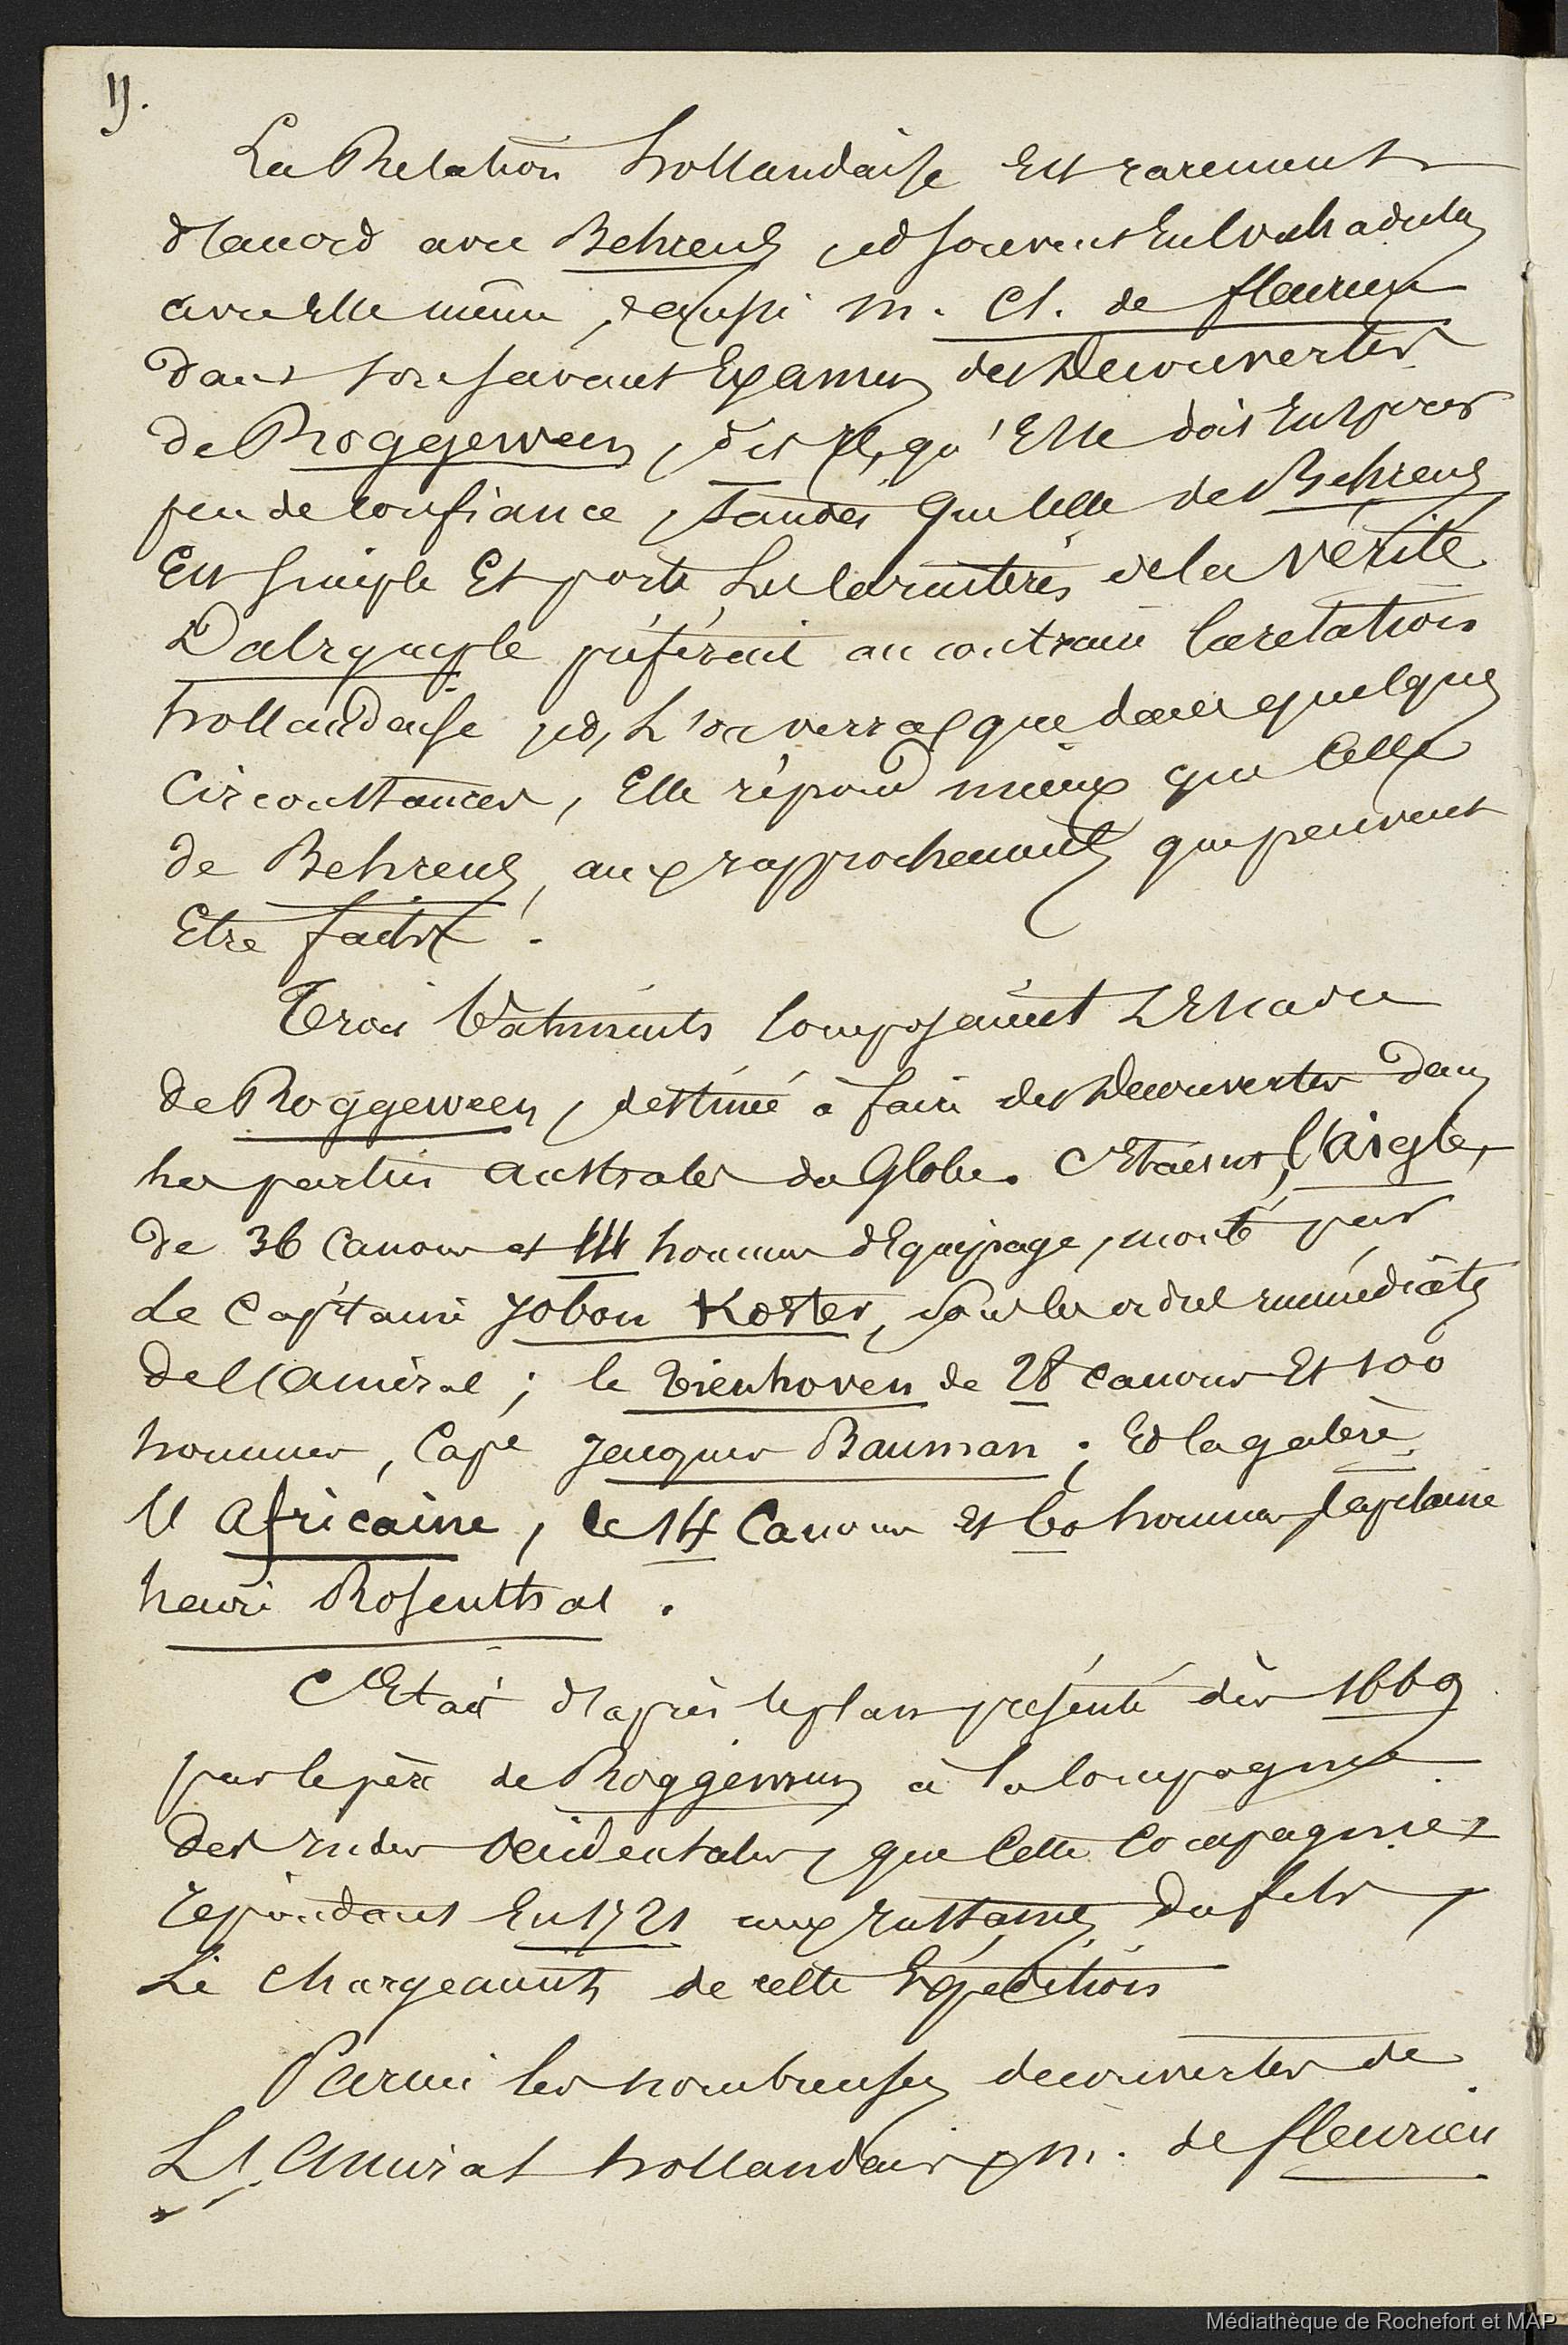 11.
La Relation hollandaise Est rarement
d'acord avec Behrens et souvent En
avec Elle même, aussi M. Cl. de fleurieu
dans son savant Examen des Decouvertes
de Roggeween, dit Il, qu'Elle doit Inspirer
peu de confiance, tandis que celle de Behrens
Est simple Et porte Les caracteres de la vérité
Dalrymple préférait au contraire la relation
hollandaise et, L'on verra que dans quelques
circonstances, Elle répond mieux que Celle
de Behrens, aux rapprochements qui peuvent
Etre faits.
Trois Batiments composaient L'Escadre
de Roggeween, destiné à faire des Decouvertes dans
les parties australes du Globe. C'Etaient, l'aigle,
de 36 Canons et 111 hommes d'Equipage, monté par
Le Capitaine Jobon Koster, sous les ordres immédiats
de l'amiral; le Tienhoven de 28 canons Et 100
hommes, Cape Jacques Bauman; Et la galère
l'africaine, de 14 Canons et 60 hommes, Capitaine
henri Rosenthal.
C'Etait d'après le plan présenté dès 1669
par le père de Roggeween à la Compagnie
des Indes Occidentales, que Cette Compagnie
repondant En 1721 aux Instances du fils,
Le chargeaient de cette Expedition
Parmi les nombreuses decouvertes de
L'Amiral hollandais, M. de fleurieu
Médiathèque de Rochefort et MAP